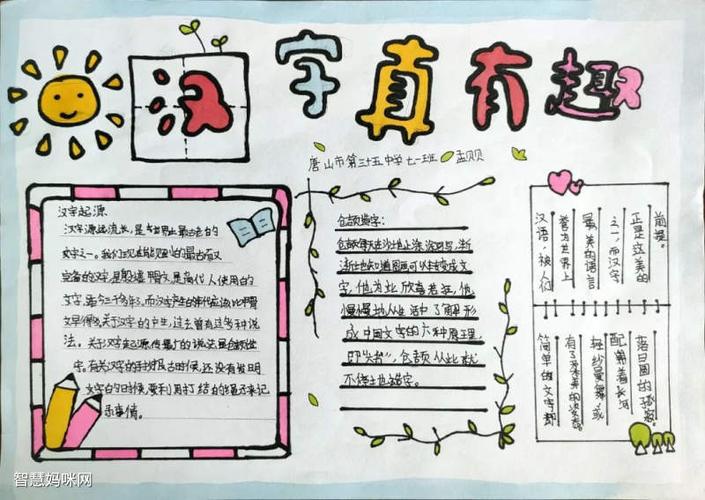 汉字真有趣
唐山市第三十五中学七一班 孟贝贝
汉字起源
汉字源起流长,是世界上最古老的
文字之一。我们现在能见到的最古而又
完备的汉字,是殷墟甲文,是商代人使用的
文字,距今三千多年,而汉字产生的年代应该比甲骨
文早得多,关于汉字的产生,过去曾有过多种说
法。关于汉字起源,传最广的说法是仓颉造
字。有关汉字的 古时候,还没有发明
文字的时候,要利用打结的绳子来记
录事情。
仓颉造字:
仓颉每天在沙地上涂涂写写,渐
渐他知道图画可以转变成文
字,他为此欣喜若狂,他
慢慢地从生活中了解形
成中国文字的六种原理,
即"六书",仓颉从此就
不停地造字。
汉语,被人们
誉为世界上
最美的语言
之一,而汉字
正是立美的
前提。
简单的文字都
有了多柔美的姿态。
轻纱曼舞,或
配粼着长河
落日圆的拯救。
智慧妈咪网